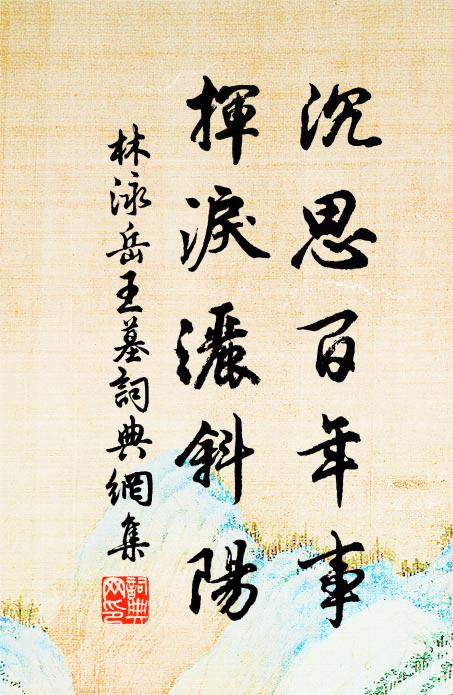 沉思百年事
揮淚灑斜陽
林泳岳王墓詞典網集